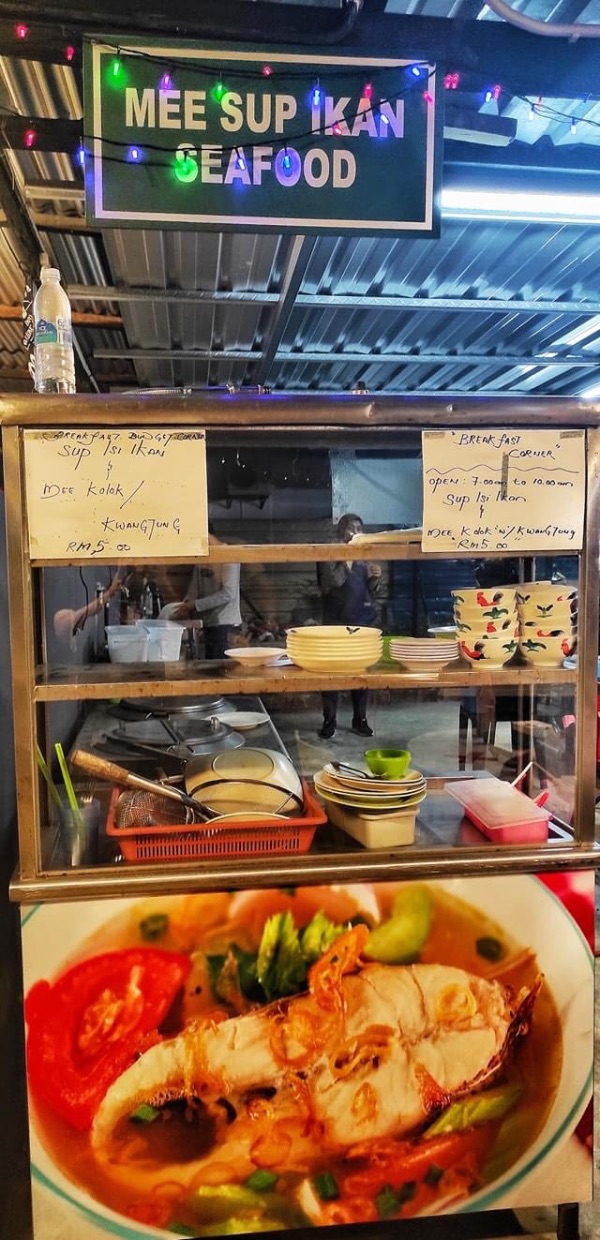 MEE SUP IKAN
SEAFOOD
BREAKFAST BUDGET CORNER
SUP ISI IKAN
&
MEE Kolok /
KWANGTUNG
RM 5.00
"BREAKFAST
CORNER"
OPEN : 7.00am to 10.00am
Sup Isi Ikan
&
MEE Kolok 'n' / KWANGTUNG
"RM 5.00"